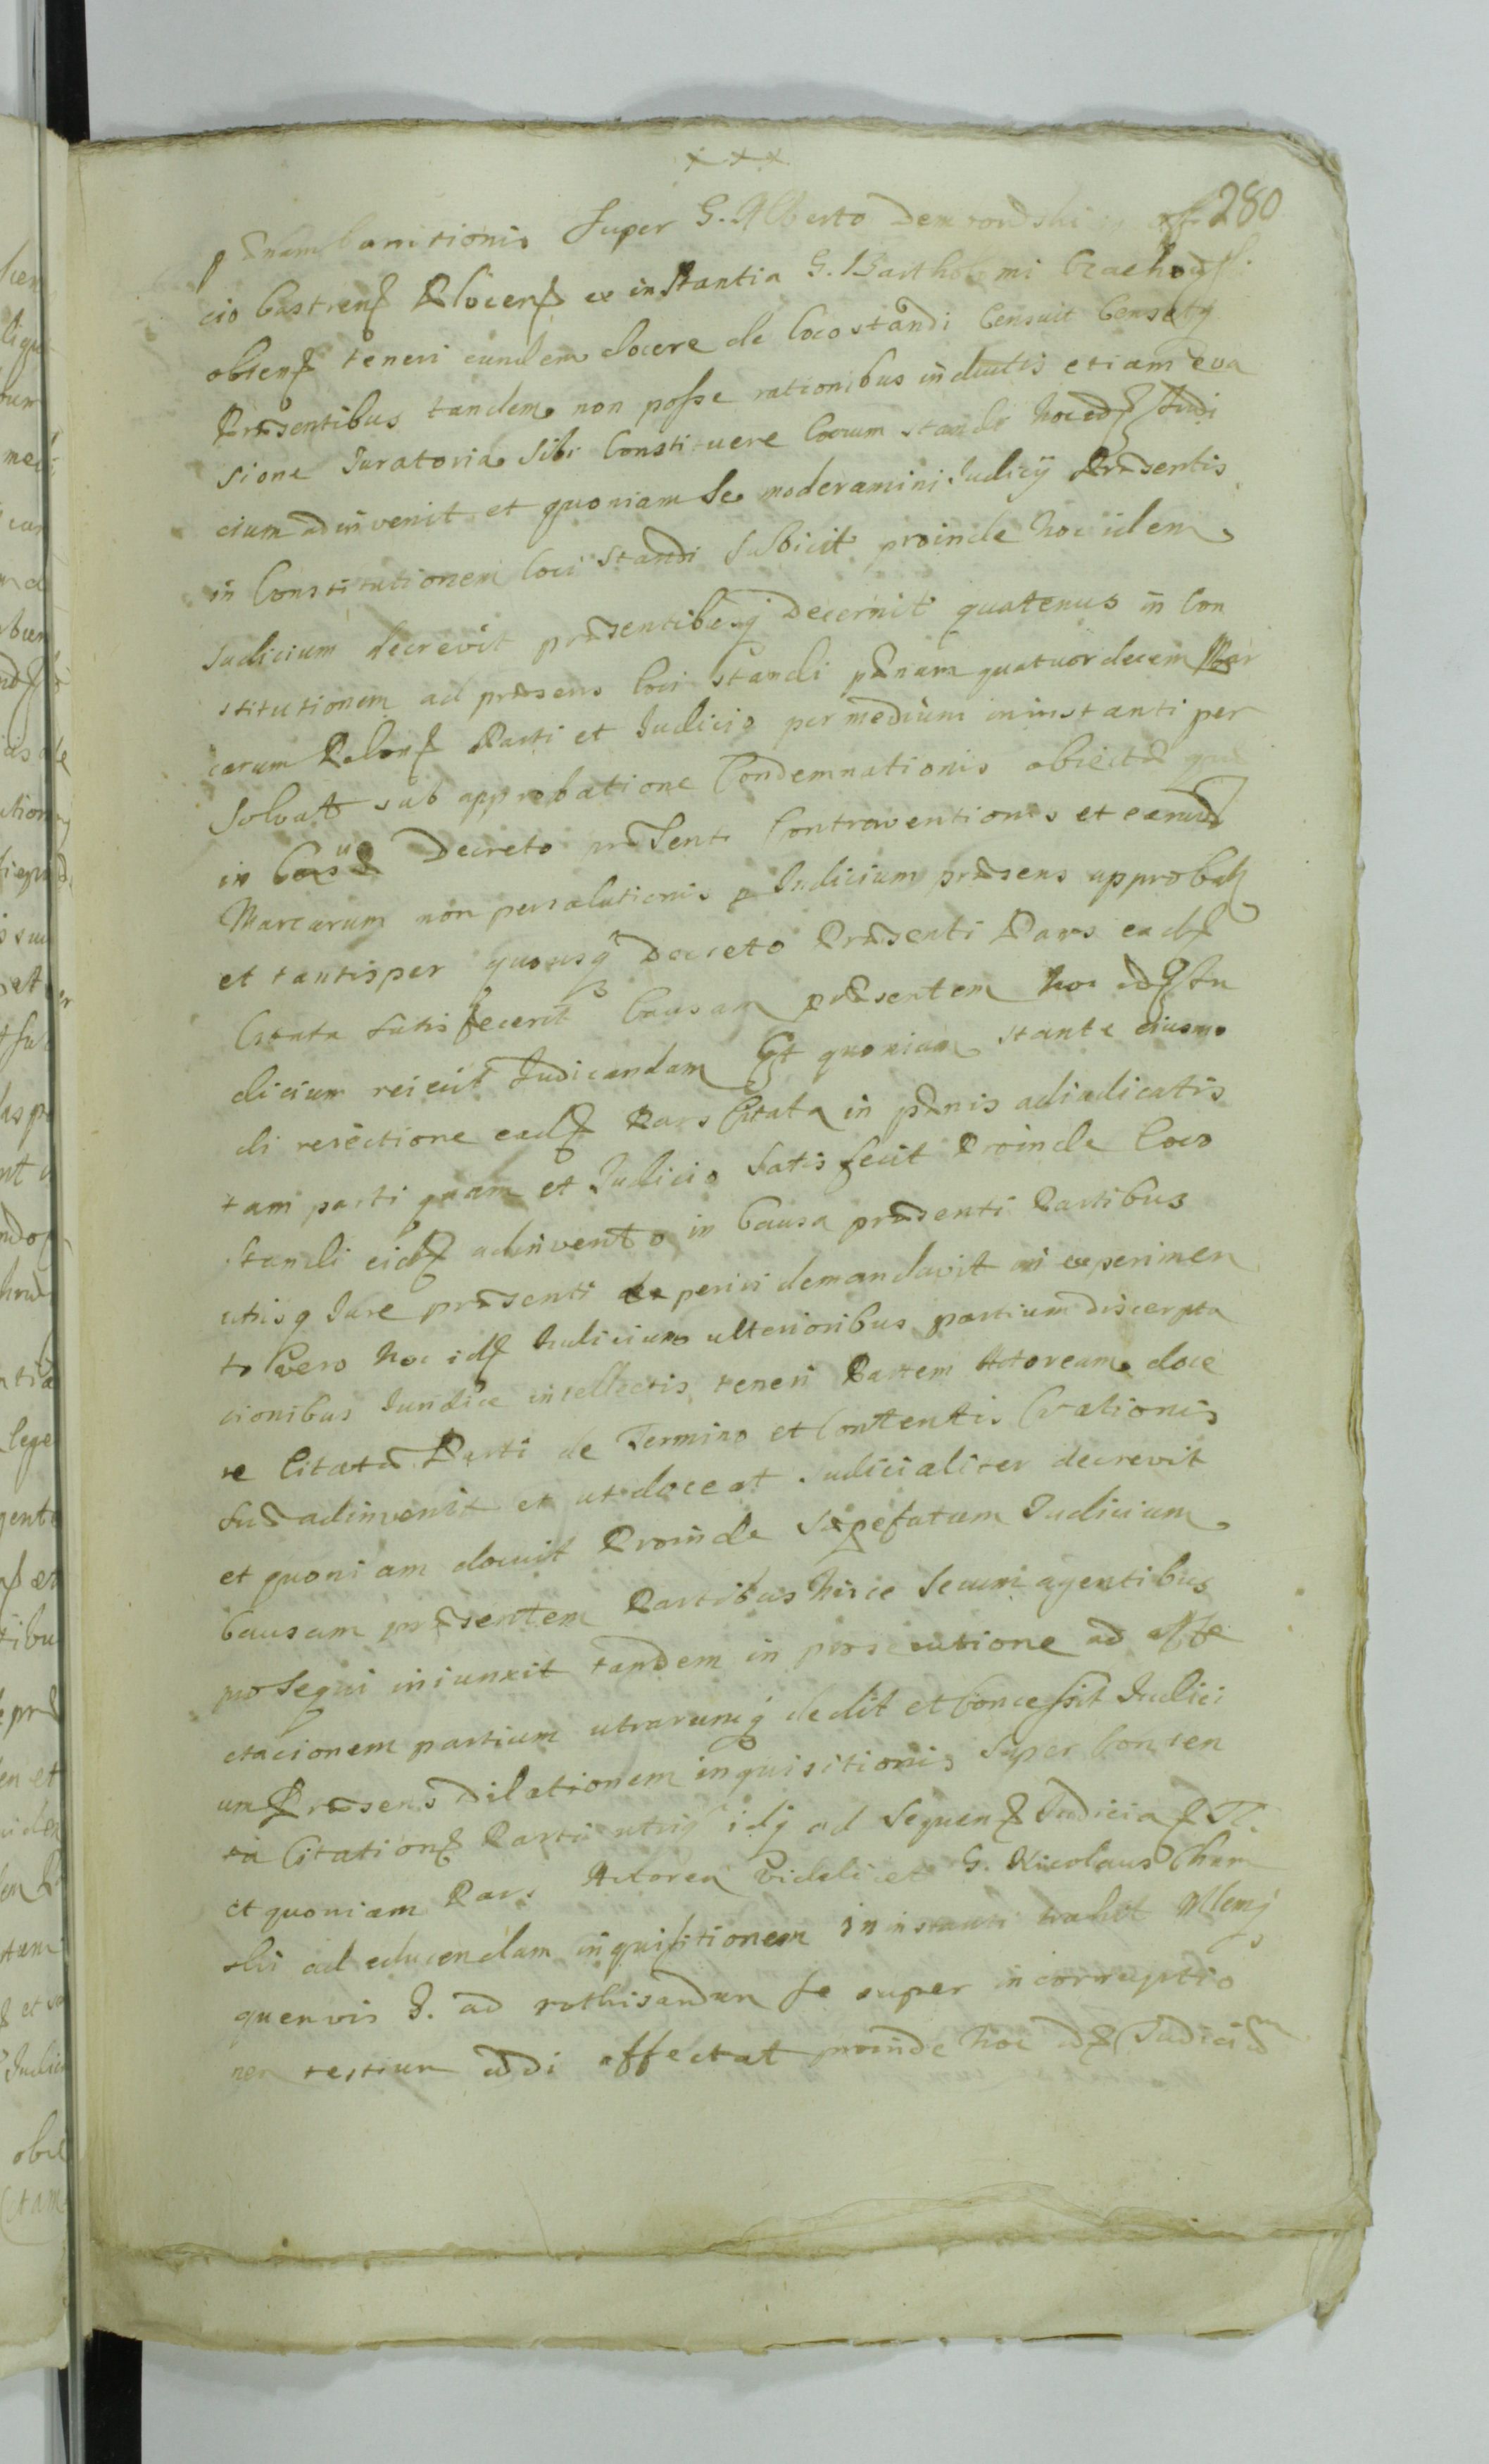 280
pænam banitionis super G. Alberto Dem
cio Castrens Plocens ex instantia G. Bartholomi
obtens teneri eundem docere de loco standi Censuit Censetq
Præsentibus tandem non posse rationibus inductis etiam eva
sione Juratoria Sibi Constituere locum standi hoc id Judi
cium adinvenit et quoniam se moderamini Judicij Præsentis
in Constitutionem loci standi subicit proinde hoc idem
Judicium decrevit præsentibusq Decernit quatenus in Con
stitutionem ad præsens loci standi pænam quatuordecem Mar
carum Polon Parti et Judicio per medium in instanti per
solvat sub approbatione Condemnationis obiectæ
in Casu Decreto præsenti Contraventionis et earund
Marcarum non persolutionis p Judicium præsens approbaty
et tantisper quousq Decreto Præsenti Pars ead
Citata satisfecerit Causam præsentem hoc id Ju
dicium reiecit Judicandam Et quoniam stante eiusmo
di reiectione ead Pars Citata in pænis adiudicatis
tam parti quam et Judicio satisfecit Proinde loco
standi eid adinvento in Causa præsenti Partibus
utrisq Jure præsenti experiri demandavit in experimen
to vero hoc id Judicium ulterioribus partium discepta
tionibus Juridice intellectis teneri Partem Actoream doce
re Citatæ Parti de Termino et Contentis Citationis
suæ adinvenit et ut doceat Judicialiter decrevit
et quoniam docuit Proinde sæpefatum Judicium
Causam præsentem Partibus hisce secum agentibus
prosequi iniunxit tandem in prosecutione ad affe
ctationem partium utrarumq dedit et Concessit Judici
um Præsens dilationem inquisitionis super Conten
ta Citation Parti utriq idq ad sequen Judicia
et quoniam Pars Actorea videlicet G. Nicolaus Cham
ski ad educendam inquisitionem in instanti
quenvis G. ad rothisandum se super incorruptio
nem testium addi affectat proinde hoc id Judicium